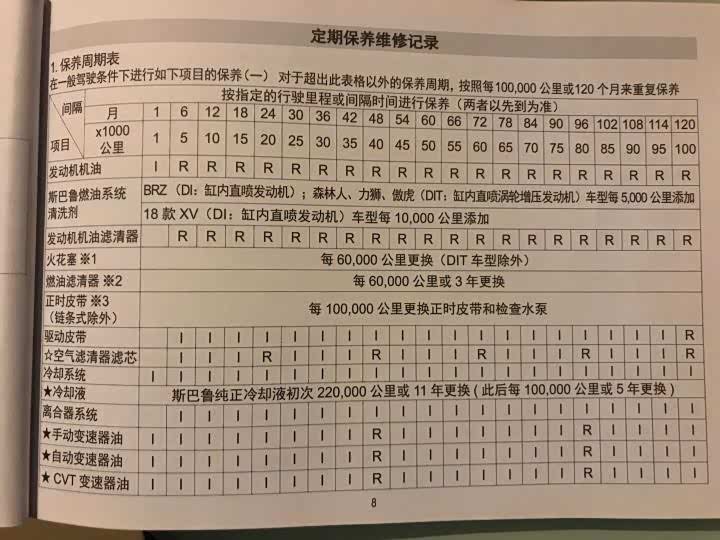 定期保养维修记录
1. 保养周期表
在一般驾驶条件下进行如下项目的保养(一) 对于超出此表格以外的保养周期，按照每100,000 公里或120 个月来重复保养
间隔 按指定的行驶里程或间隔时间进行保养（两者以先到为准）
月 1 6 12 18 24 30 36 42 48 54 60 66 72 78 84 90 96 102 108 114 120
项目 x1000 公里 1 5 10 15 20 25 30 35 40 45 50 55 60 65 70 75 80 85 90 95 100
发动机机油 I R R R R R R R R R R R R R R R R R R R R
斯巴鲁燃油系统清洗剂 BRZ（DI：缸内直喷发动机）；森林人、力狮、傲虎（DIT：缸内直喷涡轮增压发动机）车型每 5,000 公里添加
18 款 XV（DI：缸内直喷发动机）车型每 10,000 公里添加
发动机机油滤清器 R R R R R R R R R R R R R R R R R R R R
火花塞 ※1 每 60,000 公里更换（DIT 车型除外）
燃油滤清器 ※2 每 60,000 公里或 3 年更换
正时皮带 ※3（链条式除外） 每 100,000 公里更换正时皮带和检查水泵
驱动皮带 I I I I I I I I I I I I I I I I I I I R
☆空气滤清器滤芯 I I I R I I I R I I I R I I I R I I I R
冷却系统 I I I I I I I I I I I I I I I I I I I I I
★冷却液 斯巴鲁纯正冷却液初次 220,000 公里或 11 年更换 ( 此后每 100,000 公里或 5 年更换 )
离合器系统 I I I I I I I I I I I I I I I I I I I I
★手动变速器油 I I I I I I I I R I I I I I I I R I I I I
★自动变速器油 I I I I I I I I R I I I I I I I R I I I I
★ CVT 变速器油 I I I I I I I I R I I I I I I I R I I I I
8